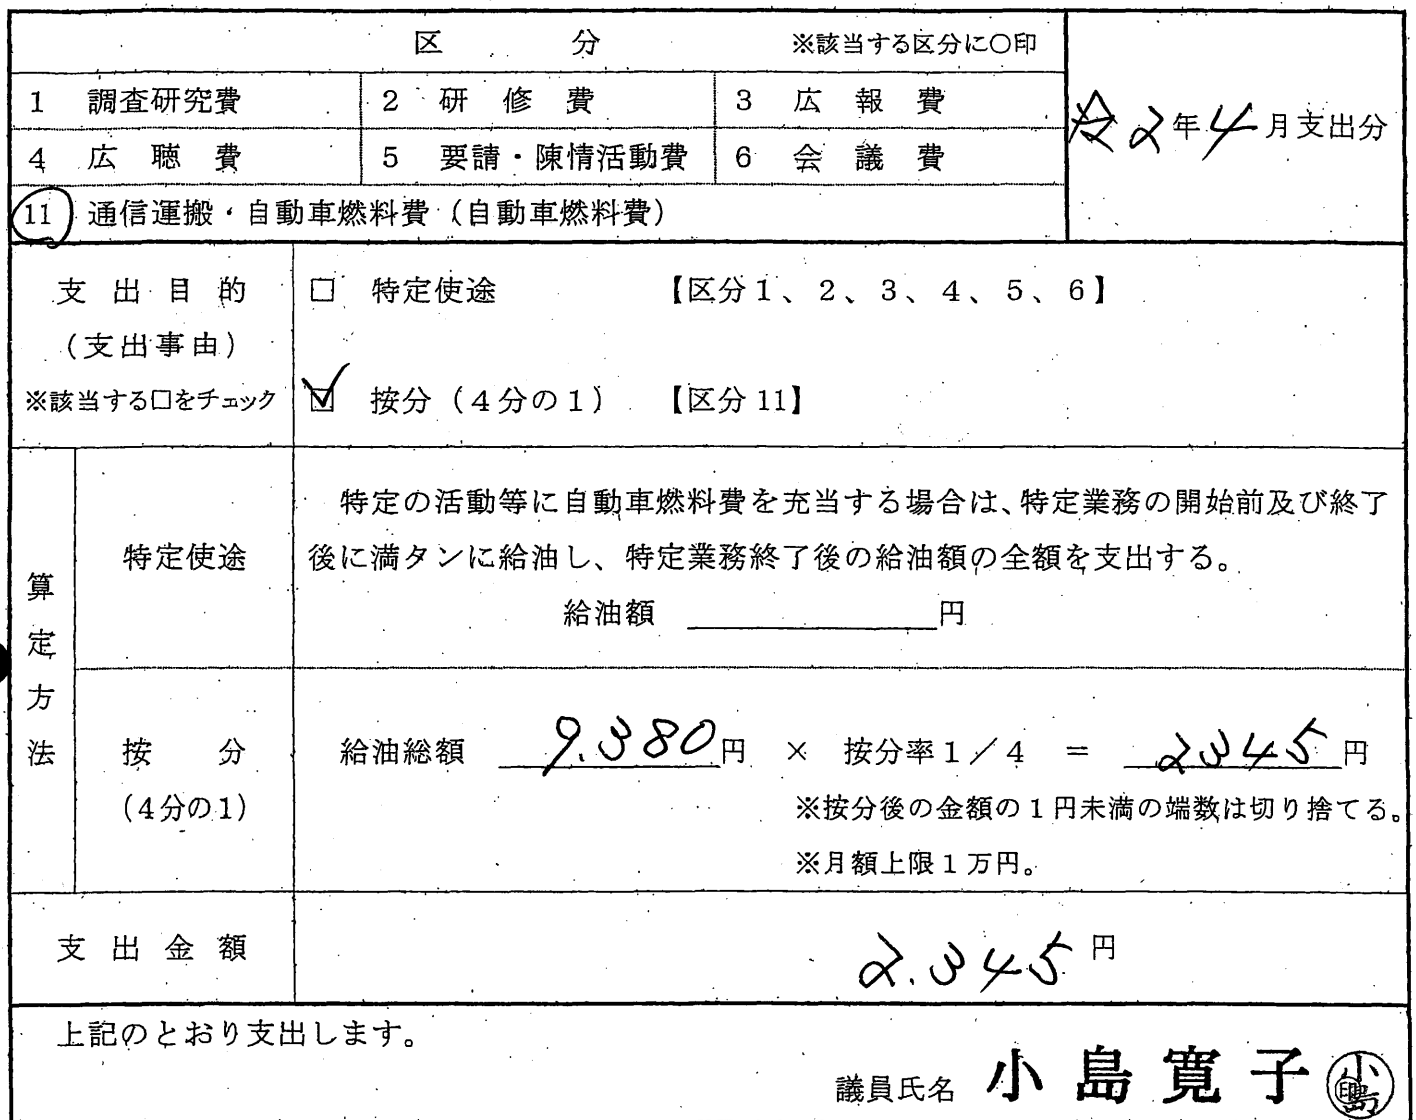 区 分 ※該当する区分に○印
1 調査研究費 2 研修費 3 広報費
令2年4月支出分
4 広聴費 5 要請・陳情活動費 6 会議費
11 通信運搬・自動車燃料費(自動車燃料費)
支出目的
(支出事由)
※該当する□をチェック
□ 特定使途 【区分1、2、3、4、5、6】
☑ 按分(4分の1) 【区分11】
算定方法
特定使途
特定の活動等に自動車燃料費を充当する場合は、特定業務の開始前及び終了
後に満タンに給油し、特定業務終了後の給油額の全額を支出する。
給油額 円
按分
(4分の1)
給油総額 9.380円 × 按分率1/4 = 2345円
※按分後の金額の1円未満の端数は切り捨てる。
※月額上限1万円。
支出金額 2.345円
上記のとおり支出します。
議員氏名 小島寛子 小島印